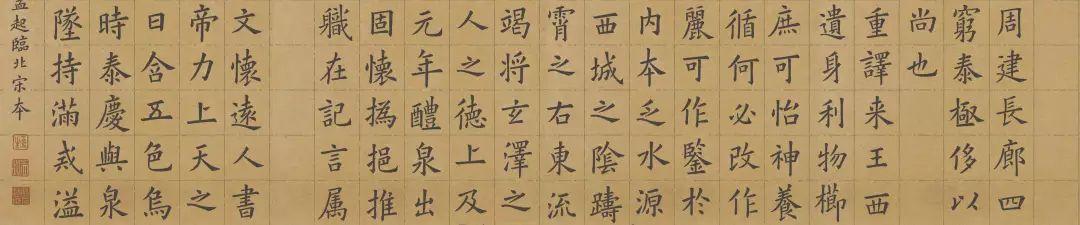 周建長廊四
窮泰極侈以
尚也
重譯来王西
遺身利物櫛
庶可怡神養
循何必改作
麗可作鑒於
内本乏水源
西城之陰躊
霄之右東流
竭将玄澤之
人之德上及
元年醴泉出
固懷撝挹推
軄在記言属
文懷遠人書
帝力上天之
日含五色烏
時泰慶與泉
墜持滿戒溢
孟起臨北宋本